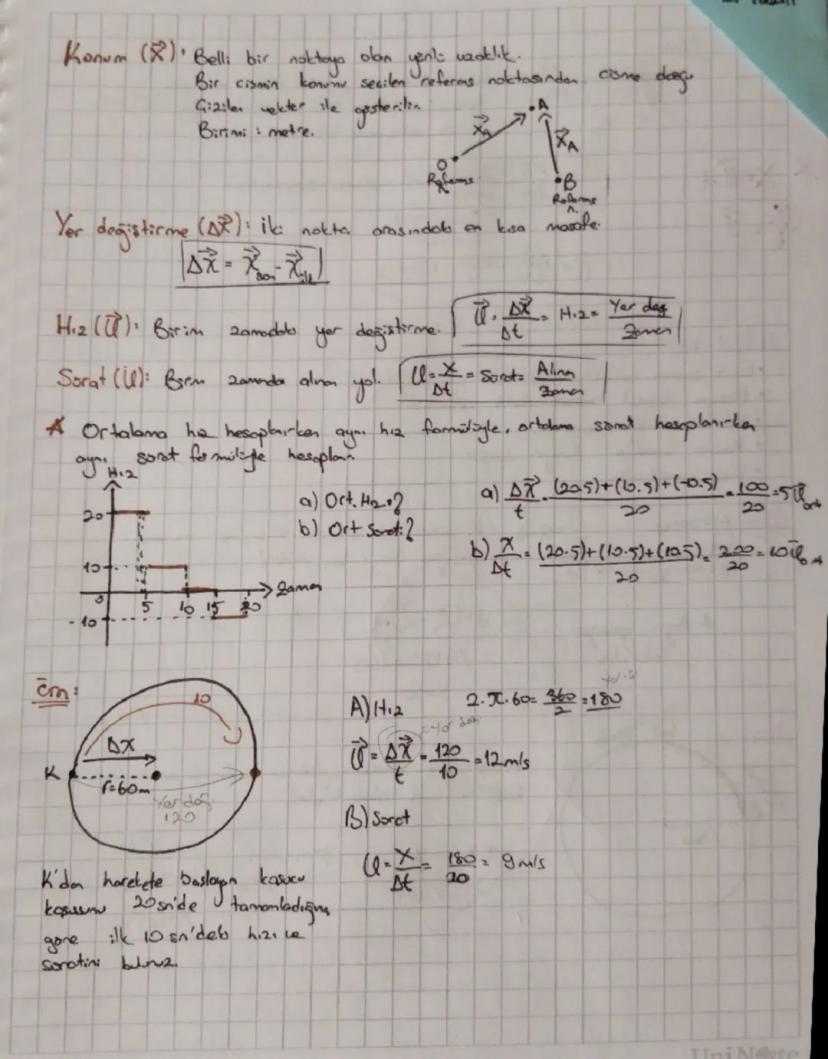 Konum (X): Belli bir noktaya olan yönlü uzaklık.
Bir cismin konumu seçilen referans noktasından cisme doğru
Çizilen vektör ile gösterilir.
Birimi: metre.
A
X_A
X_A
O
Referans
B
Referans
n.
Yer değiştirme (ΔX): iki nokta arasındaki en kısa mesafe.
ΔX = X_son - X_ilk
Hız (υ): Birim zamandaki yer değiştirme. υ = ΔX/Δt = Hız = Yer değ/Zaman
Sürat (υ): Birim zamanda alınan yol. υ = X/Δt = Sürat = Alınan/Zaman
Ortalama hız hesaplanırken aynı hız formülüyle, ortalama sürat hesaplanırken
aynı sürat formülüyle hesaplanır
Hız
20
10
0
-10
5 10 15 20 Zaman
a) Ort. Hız?
b) Ort Sürat?
a) ΔX/t = (20.5)+(10.5)+(-10.5)/20 = 100/20 = 5 υ_ort
b) X/Δt = (20.5)+(10.5)+(10.5)/20 = 200/20 = 10 υ
Örn:
10
ΔX
K
r=60m
Yer değ.
120
K'dan harekete başlayan koşucu
koşusunu 20sn'de tamamladığına
göre ilk 10 sn'deki hızı ve
süratini bulunuz.
A) Hız 2.π.60= 360/2 = 180
Yer değ
υ = ΔX/t = 120/10 = 12 m/s
B) Sürat
υ = X/Δt = 180/20 = 9 m/s
UniNote